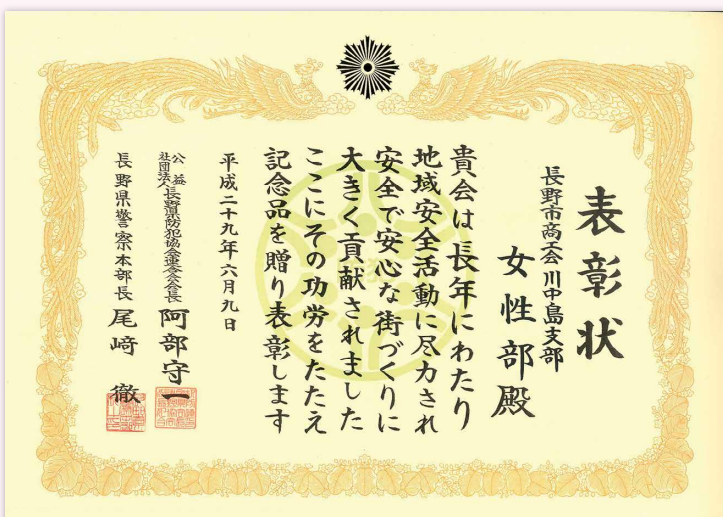 表彰状
長野市商工会川中島支部
女性部殿
貴会は長年にわたり
地域安全活動に尽力され
安全で安心な街づくりに
大きく貢献されました
ここにその功労をたたえ
記念品を贈り表彰します
平成二十九年六月九日
公益社団法人長野県防犯協会連合会会長 阿部守一
長野県警察本部長 尾﨑 徹